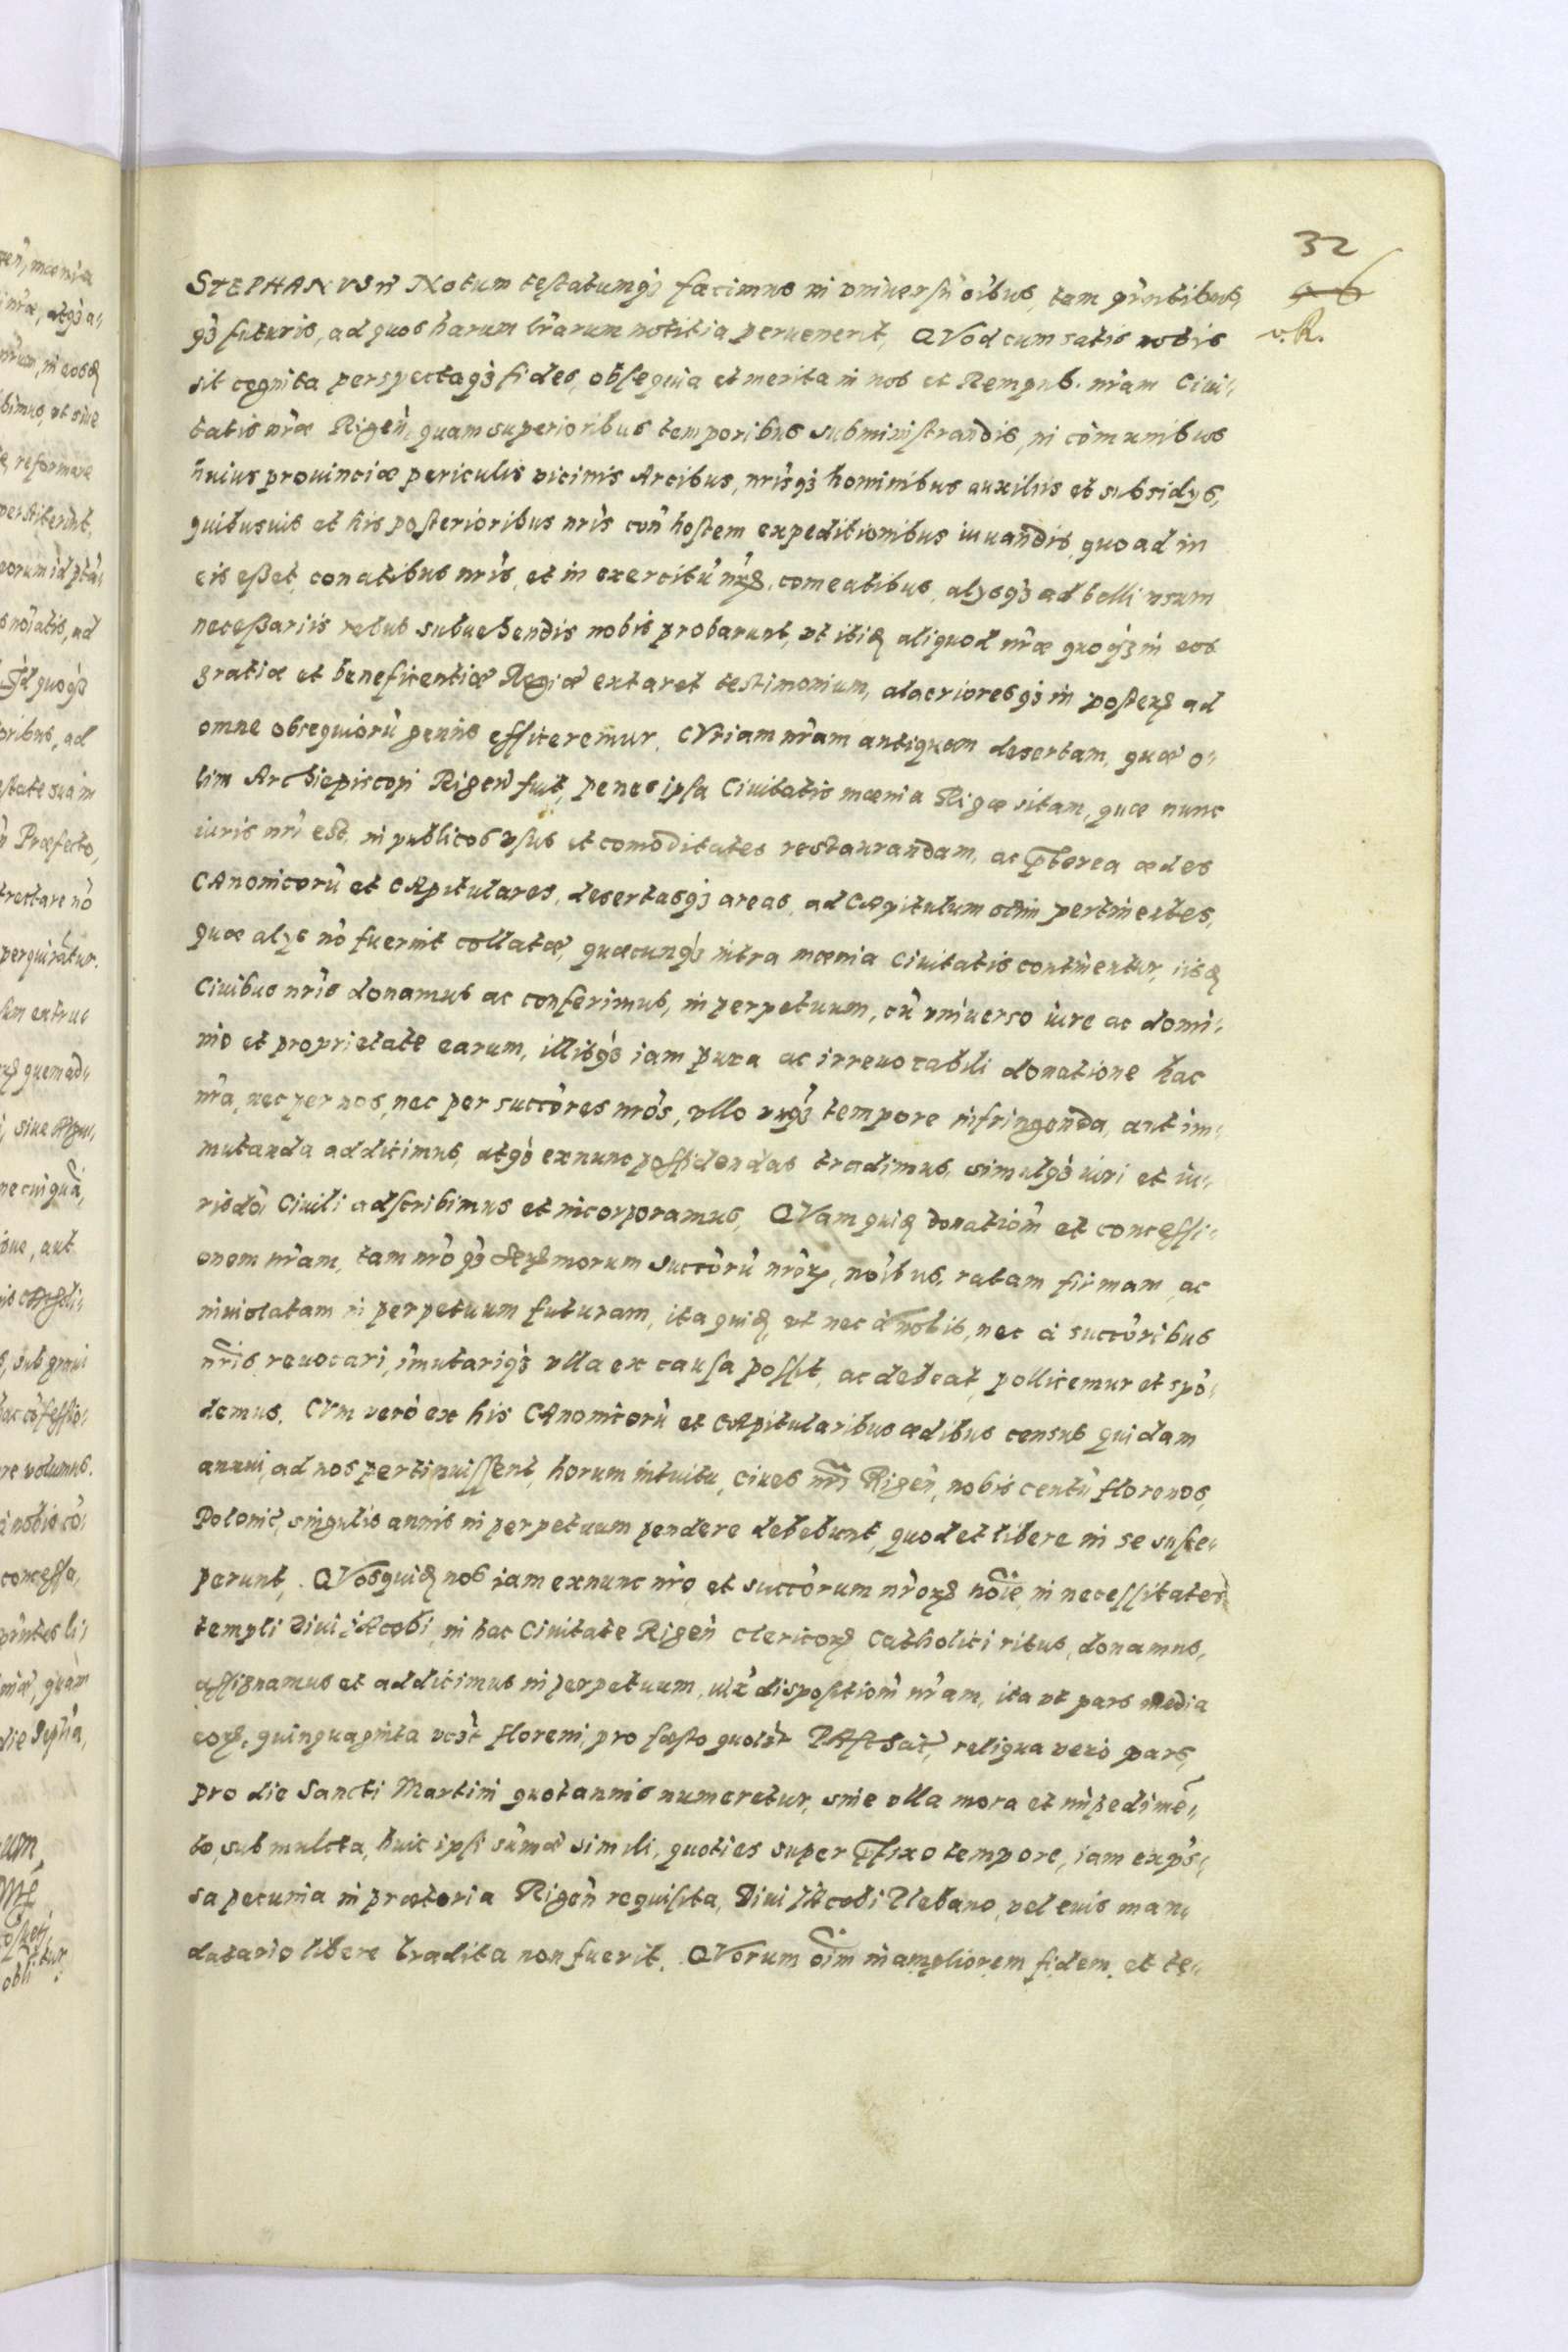 32
96
v. R.
STEPHANVS ñ Notum testatumq́ʒ facimus in vniuersũ oĩbus, tam pr̃ntibus,
q́ʒ futuris, ad quos harum lr̃arum notitia peruenerit, QVod cum satis nobis
sit cognita perspectaq́ʒ fides, obsequia et merita in nos et Rempub. nr̃am Ciui-
tatis nr̃æ Rigeñ, quam superioribus temporibus subministrandis, in cõmunibus
huius prouinciæ periculis vicinis Arcibus, nr̃isq́ʒ hominibus auxiliis et subsidys,
quibusuis et his posterioribus nr̃is con hostem expeditionibus iuuandis, quoad in
eis eßet, conatibus nr̃is, et in exercitũ nr̃ꝝ comeatibus, alysq́ʒ ad belli vsum
neceßariis rebus subuehendis nobis probarunt, vt itiꝫ aliquod nr̃æ quoq́ʒ in eos
gratiæ et beneficentiæ Regiæ extaret testimonium, alacrioresq́ʒ in posterꝝ ad
omne obsequiorũ genus efficeremur. CVriam nr̃am antiquam desertam, quæ o-
lim Archiepiscopi Rigeñ fuit, penes ipsa Ciuitatis mœnia Rigæ sitam, quæ nunc
iuris nr̃i est, in publicos vsus et comoditates restaurandam, ac p̃terea ædes
CAnonicorũ et CApitulares, desertasq́ʒ areas, ad CApitulum olim pertinentes,
quæ alys nõ fuerint collatæ, quæcunq́ʒ intra mœnia Ciuitatis continentur, iisꝫ
Ciuibus nr̃is donamus ac conferimus, in perpetuum, cũ vniuerso iure ac domi-
nio et proprietate earum, illisq́ʒ iam pura ac irreuocabili donatione hac
nr̃a, nec per nos, nec per succõres nr̃os, vllo vnq́ʒ tempore infringenda, aut im-
mutanda addicimus, atq́ʒ exnunc possidendas tradimus, simulq́ʒ iuri et iu-
risdõi Ciuili adscribimus et incorporamus, QVam quiꝫ donationẽ et concessi-
onem nr̃am, tam nr̃o q́ʒ Serꝝmorum succõrũ nr̃oꝝ, noĩbus, ratam firmam ac
inuiolatam in perpetuum futuram, ita quiꝫ, vt nec à nobis, nec à succõribus
nr̃is reuocari, imutariq́ʒ vlla ex causa possit, ac debeat, pollicemur et spõ-
demus. CVm verò ex his CAnonicorũ et CApitularibus ædibus census quidam
annui, ad nos pertinuissent, horum intuitu, ciues nr̃i Rigeñ, nobis centũ florenos,
Polonic̃, singulis annis in perpetuum pendere debebunt, quod et libere in se susce-
perunt. QVosquiꝫ nos iam exnunc nr̃o, et succõrum nr̃oꝝ noĩe, in necessitates
templi Diui jAcobi, in hac Ciuitate Rigeñ Clericoꝝ Catholici ritus, donamus,
assignamus et addicimus in perpetuum, iux̃ dispositionẽ nr̃am, ita vt pars media
eoꝝ, quinquaginta vczt floreni, pro festo quolꝫ PAschat, reliqua verò pars,
pro die Sancti Martini quotannis numeretur, sine vlla mora et impedimẽ-
to, sub mulcta, huic ipsi sũmæ simili, quoties super p̃fixo tempore, iam exp̃s-
sa pecunia in prætoria Rigeñ requisita, Diui jAcobi Plebano, vel euis man-
datario libere tradita non fuerit. QVorum oĩm in ampliorem fidem, et te-